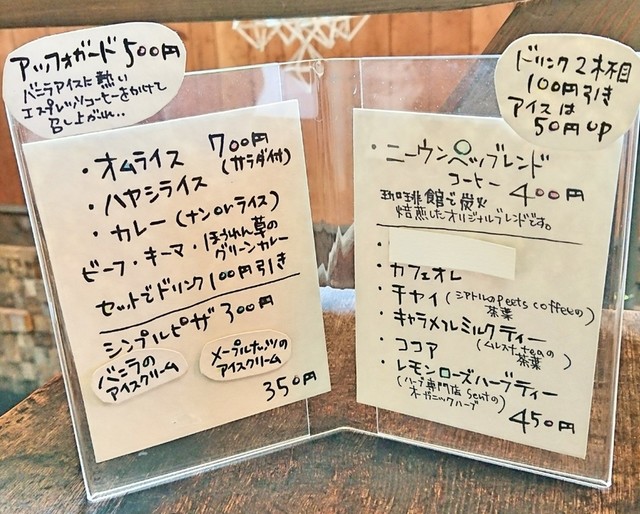 アッフォガード 500円
バニラアイスに熱い
エスプレッソコーヒーをかけて
召し上がれ..
・オムライス 700円
(サラダ付)
・ハヤシライス
・カレー(ナンorライス)
ビーフ・キーマ・ほうれん草の
グリーンカレー
セットでドリンク100円引き
シンプルピザ 300円
バニラの
アイスクリーム
メープルナッツの
アイスクリーム
350円
ドリンク2杯目
100円引き
アイスは
50円up
・ニーウンペツブレンド
コーヒー 400円
珈琲館で炭火
焙煎したオリジナルブレンドです。
・
カフェオレ
・チャイ(シアトルのpeets coffeeの
茶葉)
・キャラメルミルクティー
・ココア (ムレスナteaの
茶葉)
・レモンローズハーブティー
(ハーブ専門店sentの
オーガニックハーブ
450円